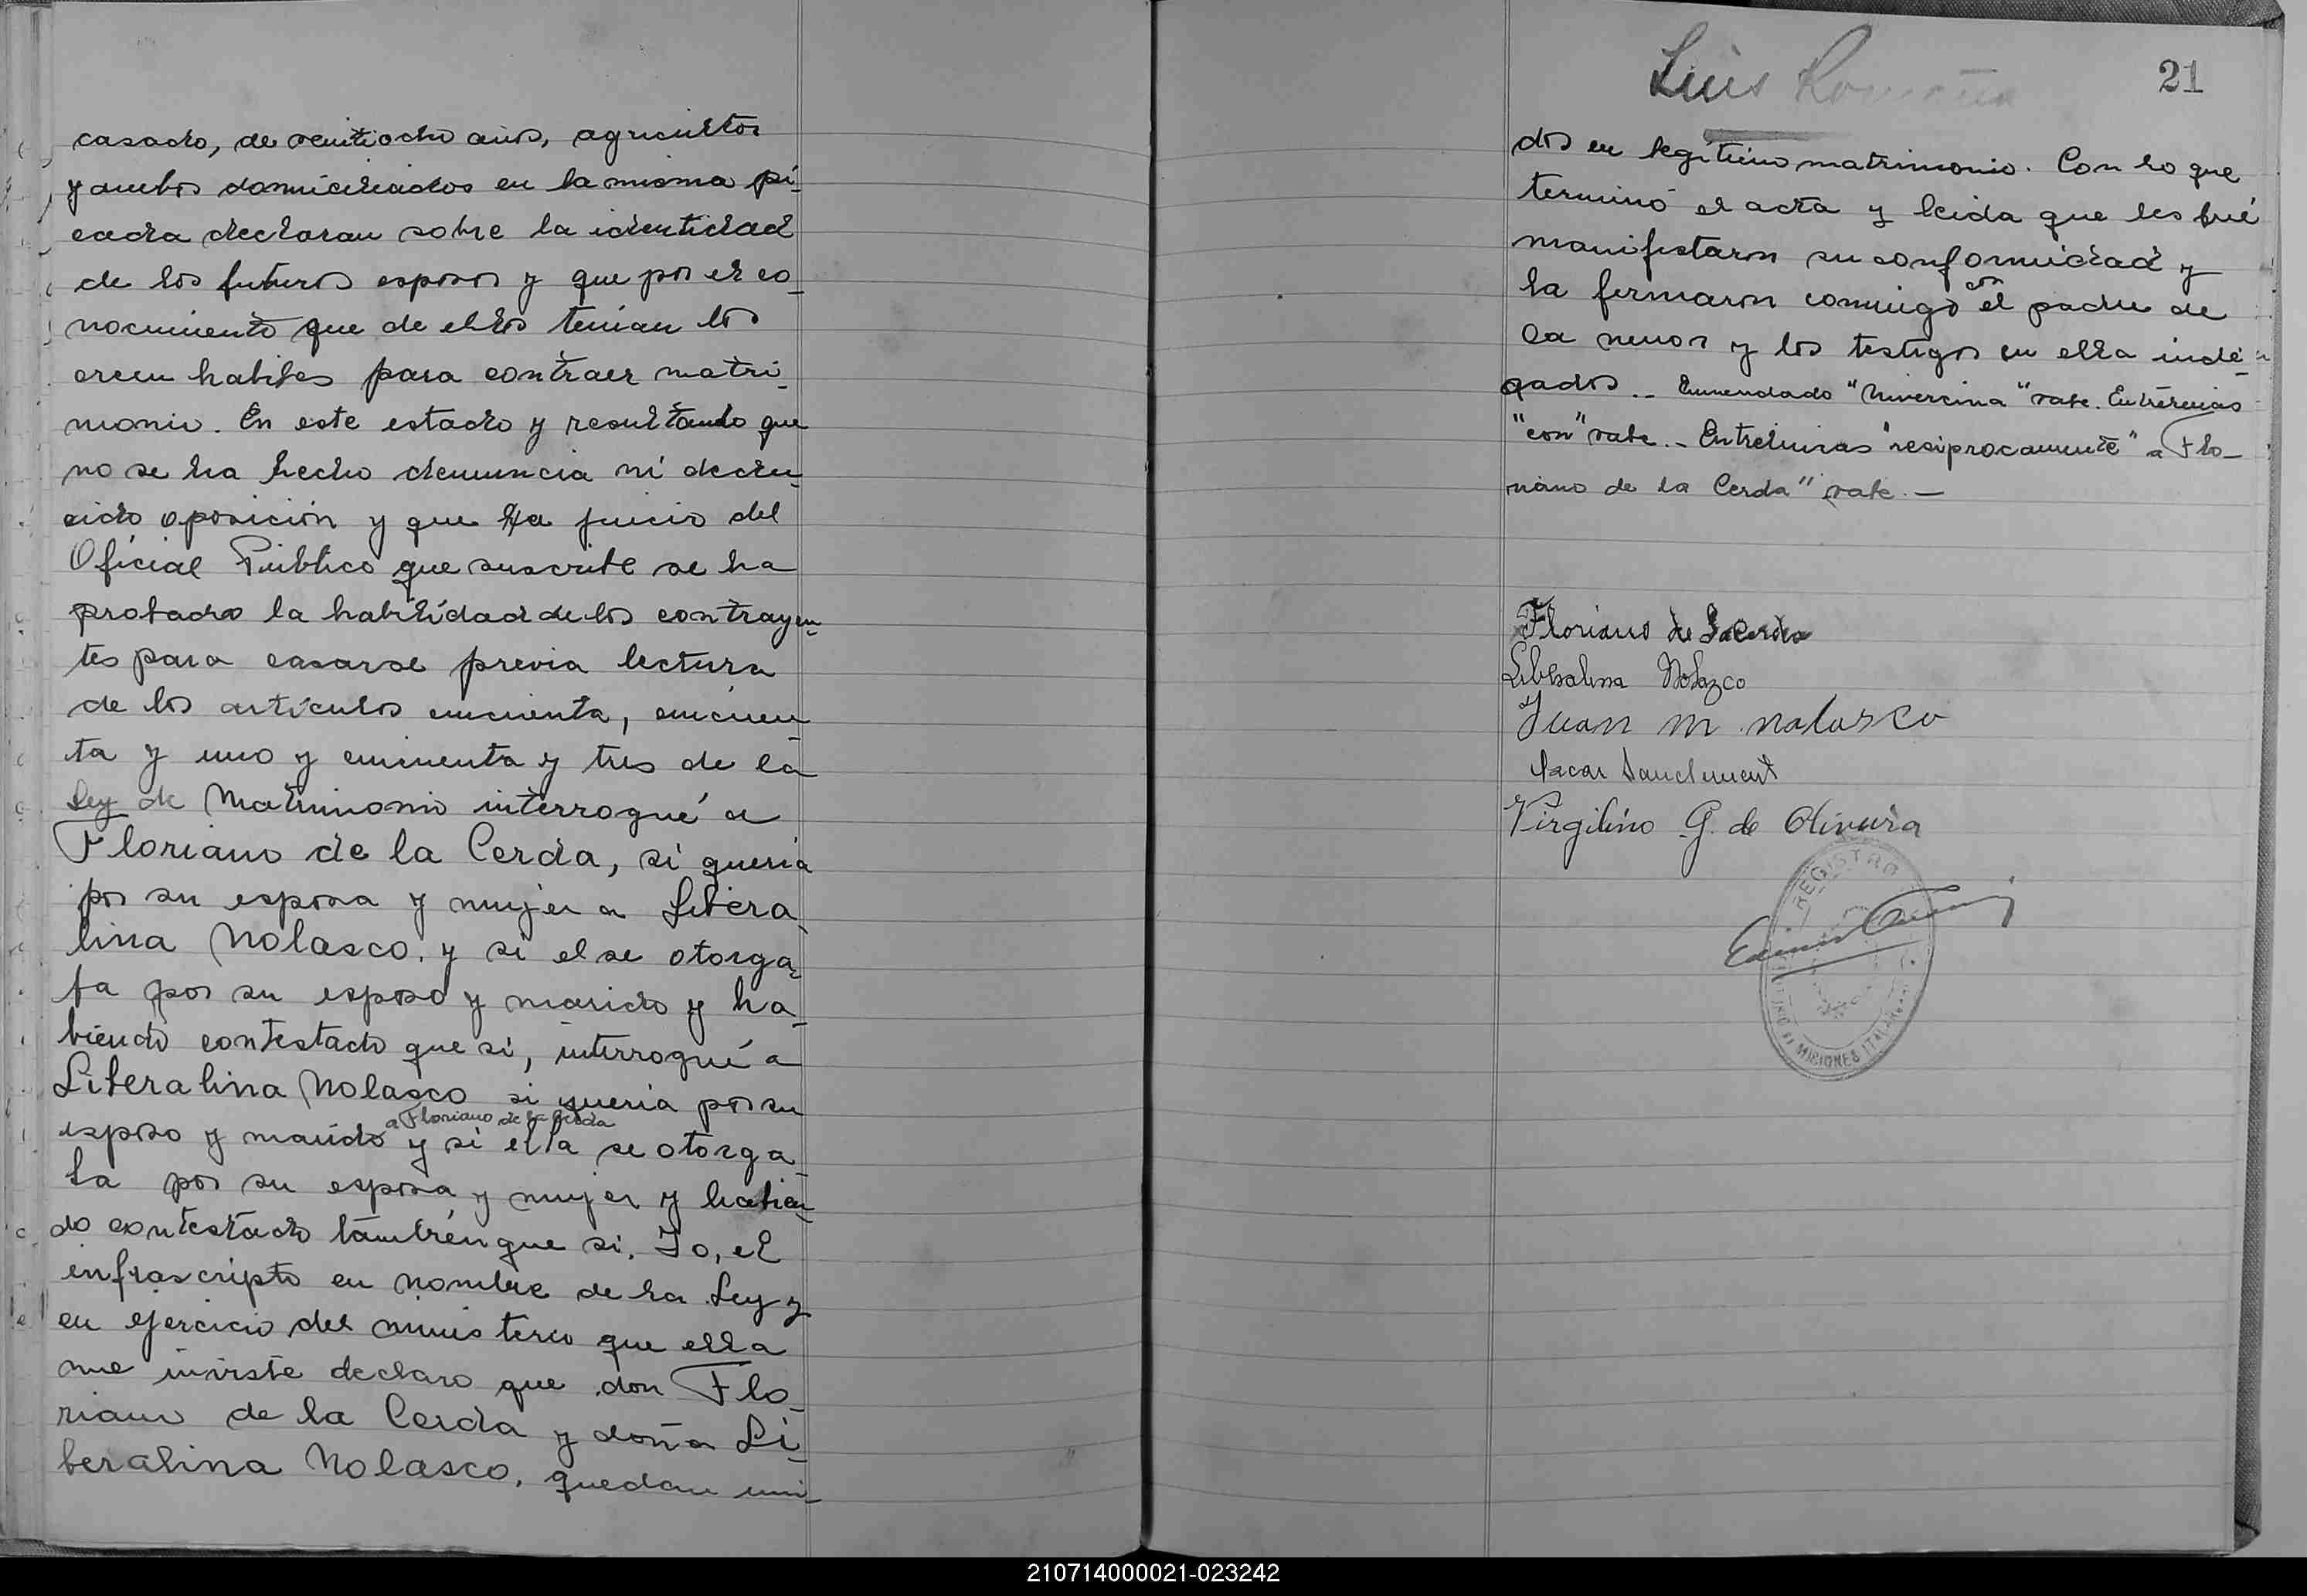 casado, de veintiocho años, agricultor
y ambos domiciliados en la misma pi-
cada declaran sobre la identidad
de los futuros esposos y que por el co-
nocimiento que de ellos tenian los
creen habiles para contraer matri-
monio. En este estado y resultando que
no se ha hecho denuncia ni dedu-
cido oposición y que a juicio del
Oficial Público que suscribe se ha
probado la habilidad de los contrayen-
tes para casarse previa lectura
de los artículos cincuenta, cincuen-
ta y uno y cincuenta y tres de la
Ley de Matrimonio interrogué a
Floriano de la Cerda, si queria
por su esposa y mujer a Libera-
lina Nolasco. y si el se otorga-
ba por su esposo y marido y ha-
biendo contestado que si, interrogué a
Liberalina Nolasco si queria por su
a Floriano de la Cerda
esposo y marido y si ella se otorga-
ba por su esposa y mujer y habien-
do contestado también que si. Yo, el
infrascripto en nombre de la Ley y
en ejercicio del ministerio que ella
me inviste declaro que don Flo-
riano de la Cerda y doña Li-
beralina Nolasco, quedan uni-
Luis
21
dos en legítimo matrimonio. Con lo que
terminó el acta y leida que les fué
manifestaron su conformidad y
con
la firmaron conmigo el padre de
la menor y los testigos en ella inde-
gados.. Enmendado "Nivercina" vale. Entrelineas
"con" vale.- Entrelineas "resiprocamente" "a Flo-
riano de la Cerda" vale.-
Floriano de LaCerda
Liberalina Nolazco
Juan M nolasco
Oscar Sanclement
Virgilino G. de Oliveira
REGISTRO
MISIONES